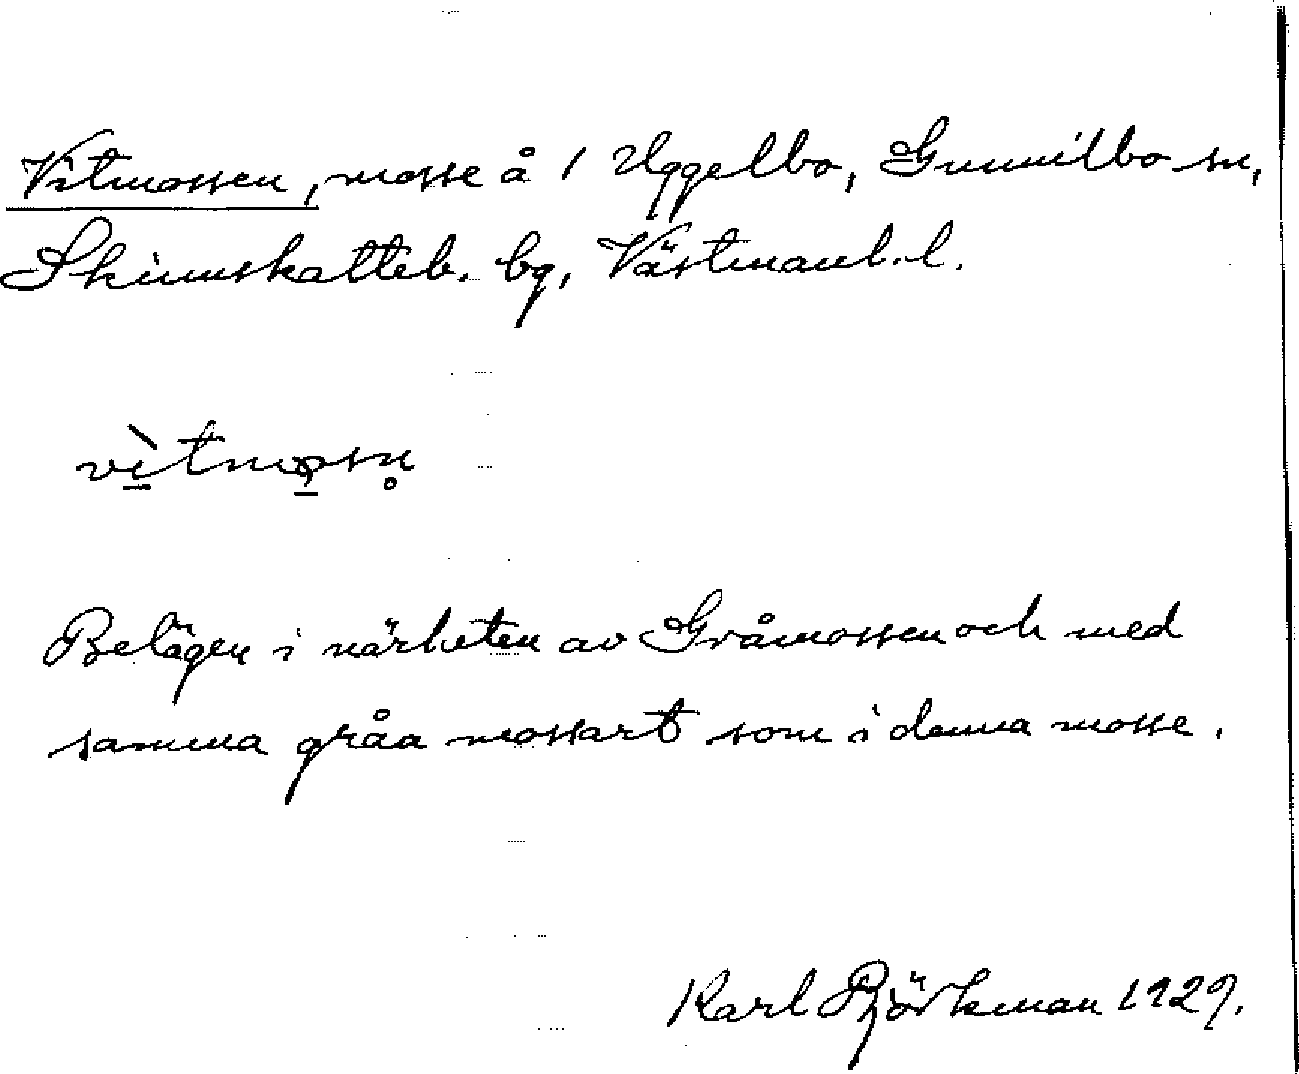 Vitmossen, mosse å 1 Uggelbo, Gunnilbo sn,
Skinnskatteb. bg, Västmanl. l.
vìtmo̱sn̥
Belägen i närheten av Gråmossen och med
samma gråa mossart som i denna mosse.
Karl Björkman 1929.